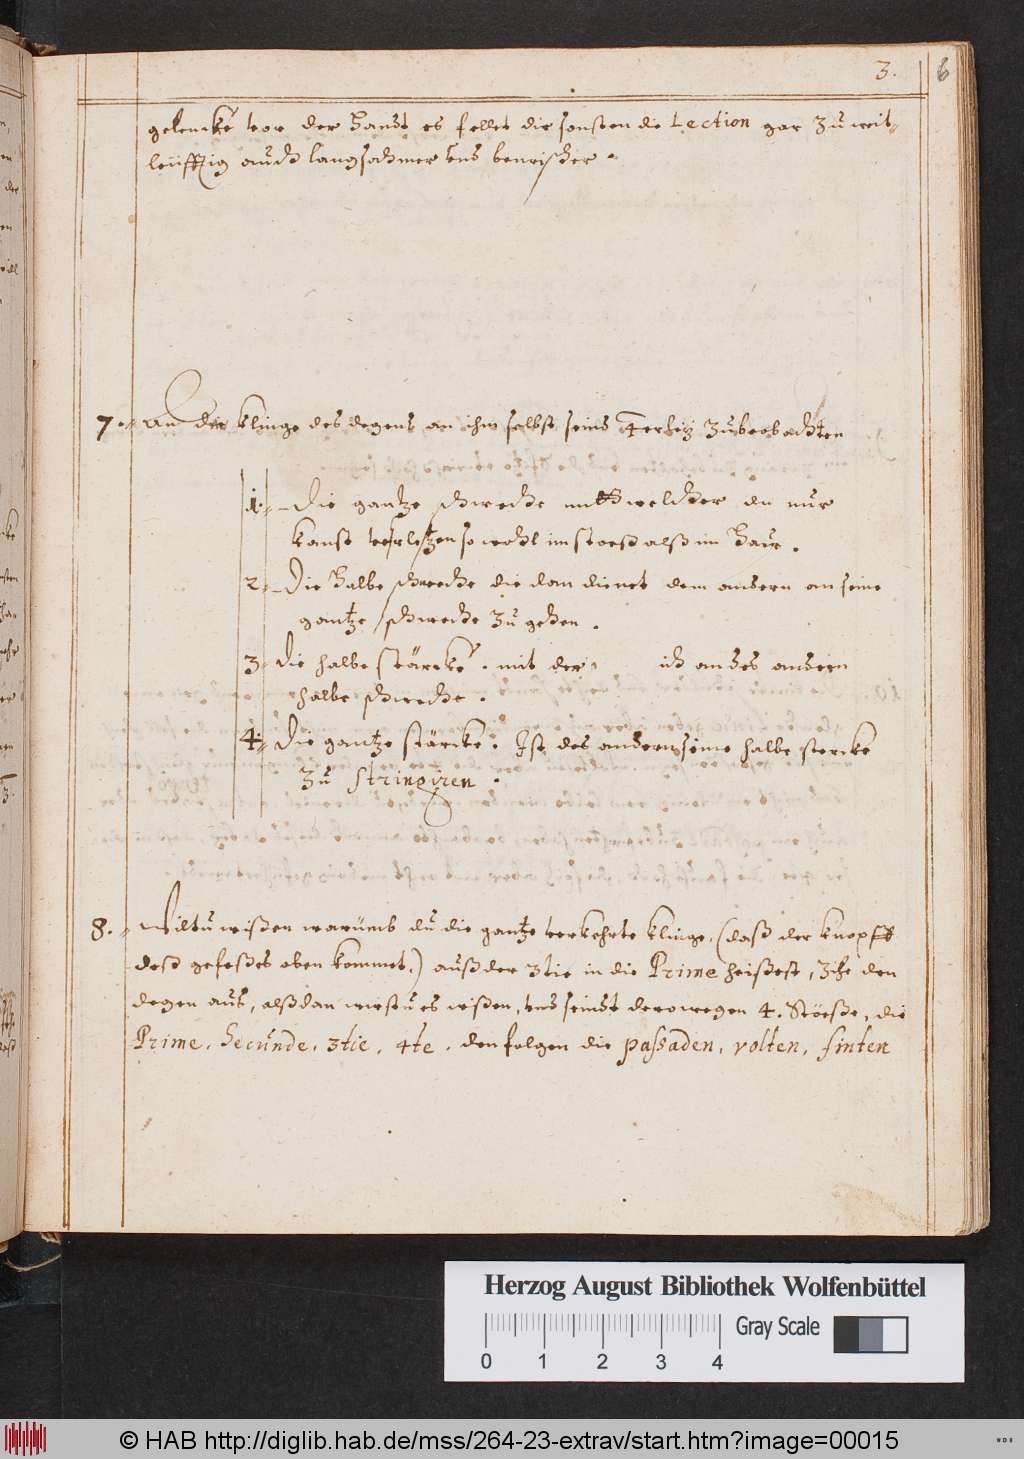 3. 6
gelencke vor der handt es fellet dir sonsten die Lection gar zu weit-
leüfftig auch langsahmer vnd
7. An der Klinge des degens an ihm selbst seind 4erley zubeobachten
1. Die gantze schweche mitt welcher du nur
kanst verletzen so wohl im stoeß alß im Hauw.
2. Die halbe schweche die dan dienet dem andern an seine
gantze schweche zu gehen.
3. Die halbe stärcke. mit der ich an des andern
halbe schweche.
4. Die gantze stärcke. Ist des andern seine halbe stercke
zu stringiren.
8. Wiltu wißen warümb du die gantze verkehrte klinge, (daß der knopff
deß gefeßes oben kommet,) auß der 3tie in die Prime heißest, Zihe den
degen aus, alßdan wirstu es wißen, vnd seindt derowegen 4. Stöeße, die
Prime. Secunde. 3tie. 4te. den folgen die passaden, volten, finten
Herzog August Bibliothek Wolfenbüttel
Gray Scale
0 1 2 3 4
© HAB http://diglib.hab.de/mss/264-23-extrav/start.htm?image=00015